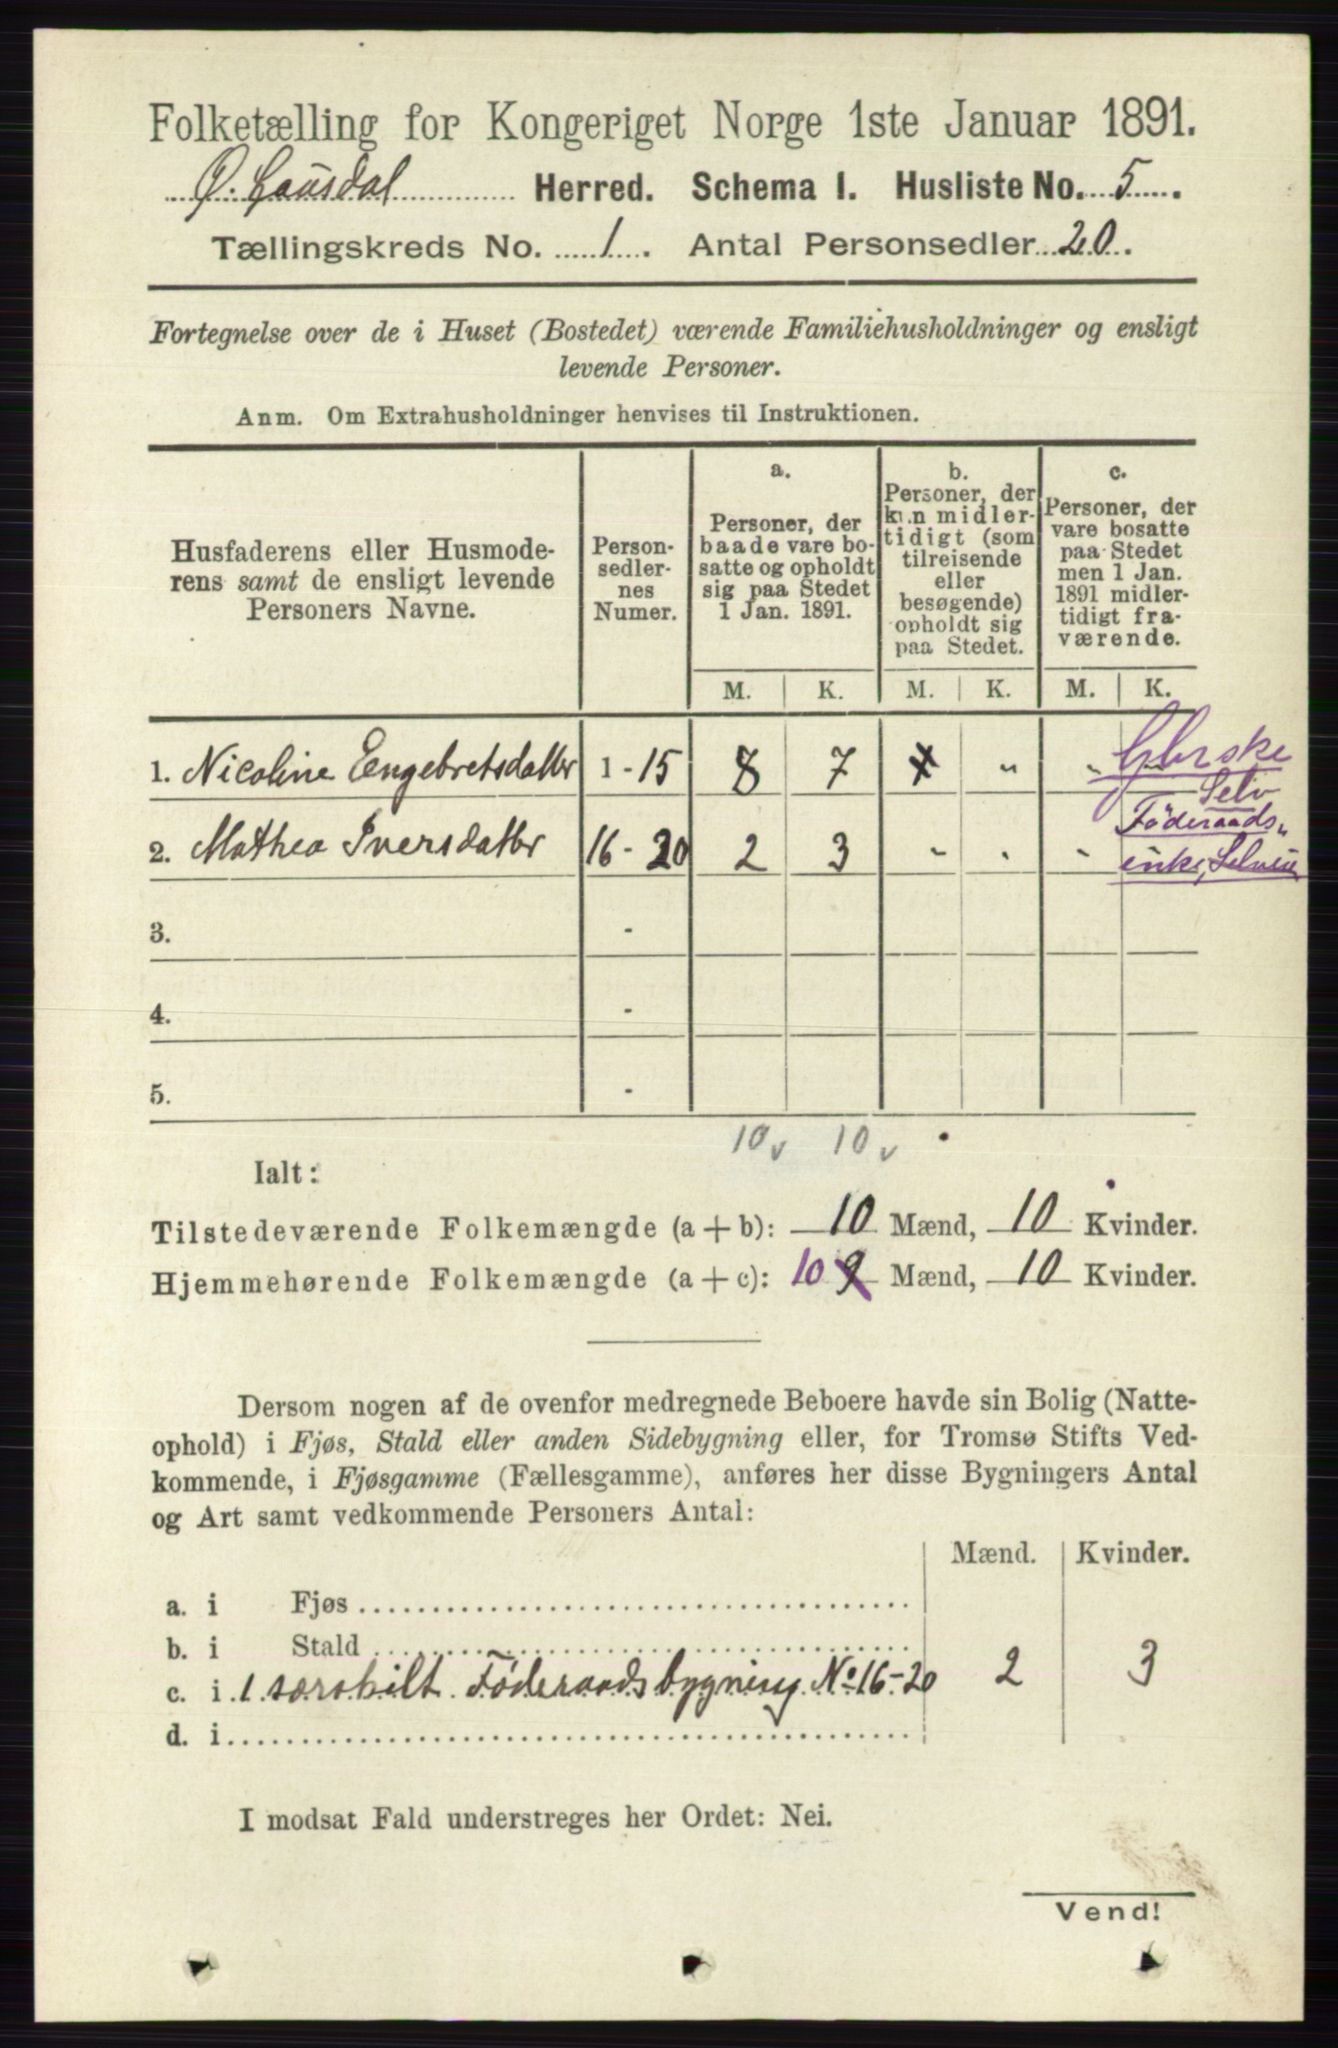 Folketælling for Kongeriget Norge 1ste Januar 1891.
Ø. Gausdal Herred. Schema I. Husliste No. 5.
Tællingskreds No. 1. Antal Personsedler 20.
Fortegnelse over de i Huset (Bostedet) værende Familiehusholdninger og ensligt
levende Personer.
Anm. Om Extrahusholdninger henvises til Instruktionen.
Husfaderens eller Husmode-
rens samt de ensligt levende
Personers Navne.
Person-
sedler-
nes
Numer.
a.
Personer, der
baade vare bo-
satte og opholdt
sig paa Stedet
1 Jan. 1891.
b.
Personer, der
kun midler-
tidigt (som
tilreisende
eller
besøgende)
opholdt sig
paa Stedet.
c.
Personer, der
vare bosatte
paa Stedet
men 1 Jan.
1891 midler-
tidigt fra-
værende.
M. K. M. K. M. K.
1. Nicoline Engebretsdatter 1 - 15 8 7 - -
Selv
Föderaads-
2. Mathea Iversdatter 16 - 20 2 3 - - -
enke,
3. -
4. -
5. -
10 v 10 v
Ialt:
Tilstedeværende Folkemængde (a + b): 10 Mænd, 10 Kvinder.
Hjemmehørende Folkemængde (a + c): 10 9 Mænd, 10 Kvinder.
Dersom nogen af de ovenfor medregnede Beboere havde sin Bolig (Natte-
ophold) i Fjøs, Stald eller anden Sidebygning eller, for Tromsø Stifts Ved-
kommende, i Fjøsgamme (Fællesgamme), anføres her disse Bygningers Antal
og Art samt vedkommende Personers Antal:
Mænd. Kvinder.
a. i Fjøs
b. i Stald
c. i 1 særskilt Föderaadsbygning No 16-20 2 3
d. i
I modsat Fald understreges her Ordet: Nei.
Vend!